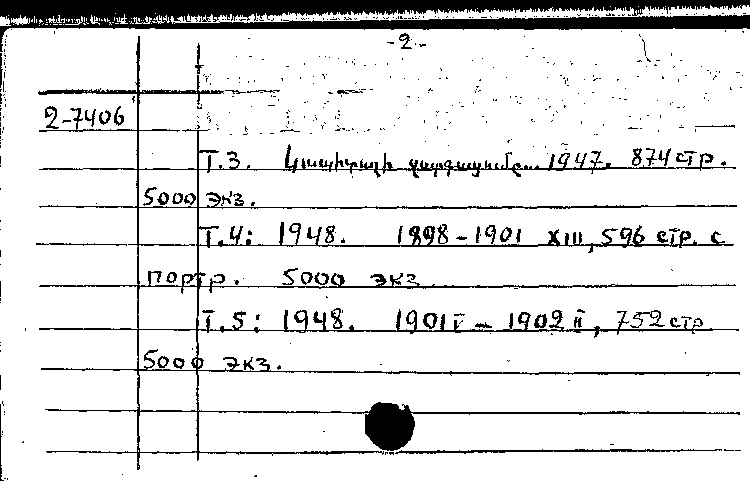 -2-
2-7406
Т.3. Կապիտալի զարգացումը... 1947. 874 стр.
5000 экз.
Т.4: 1948. 1898-1901 XIII, 596 стр. с
портр. 5000 экз.
Т.5: 1948. 1901 V - 1902 II, 752 стр
5000 экз.